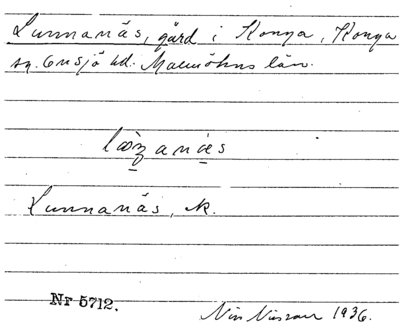 Lunnanäs, gård i Konga, Konga
sn. Onsjö hd. Malmöhus län.
Lunnanäs, k.
Nr 5712.
Nils Nilsson 1936.